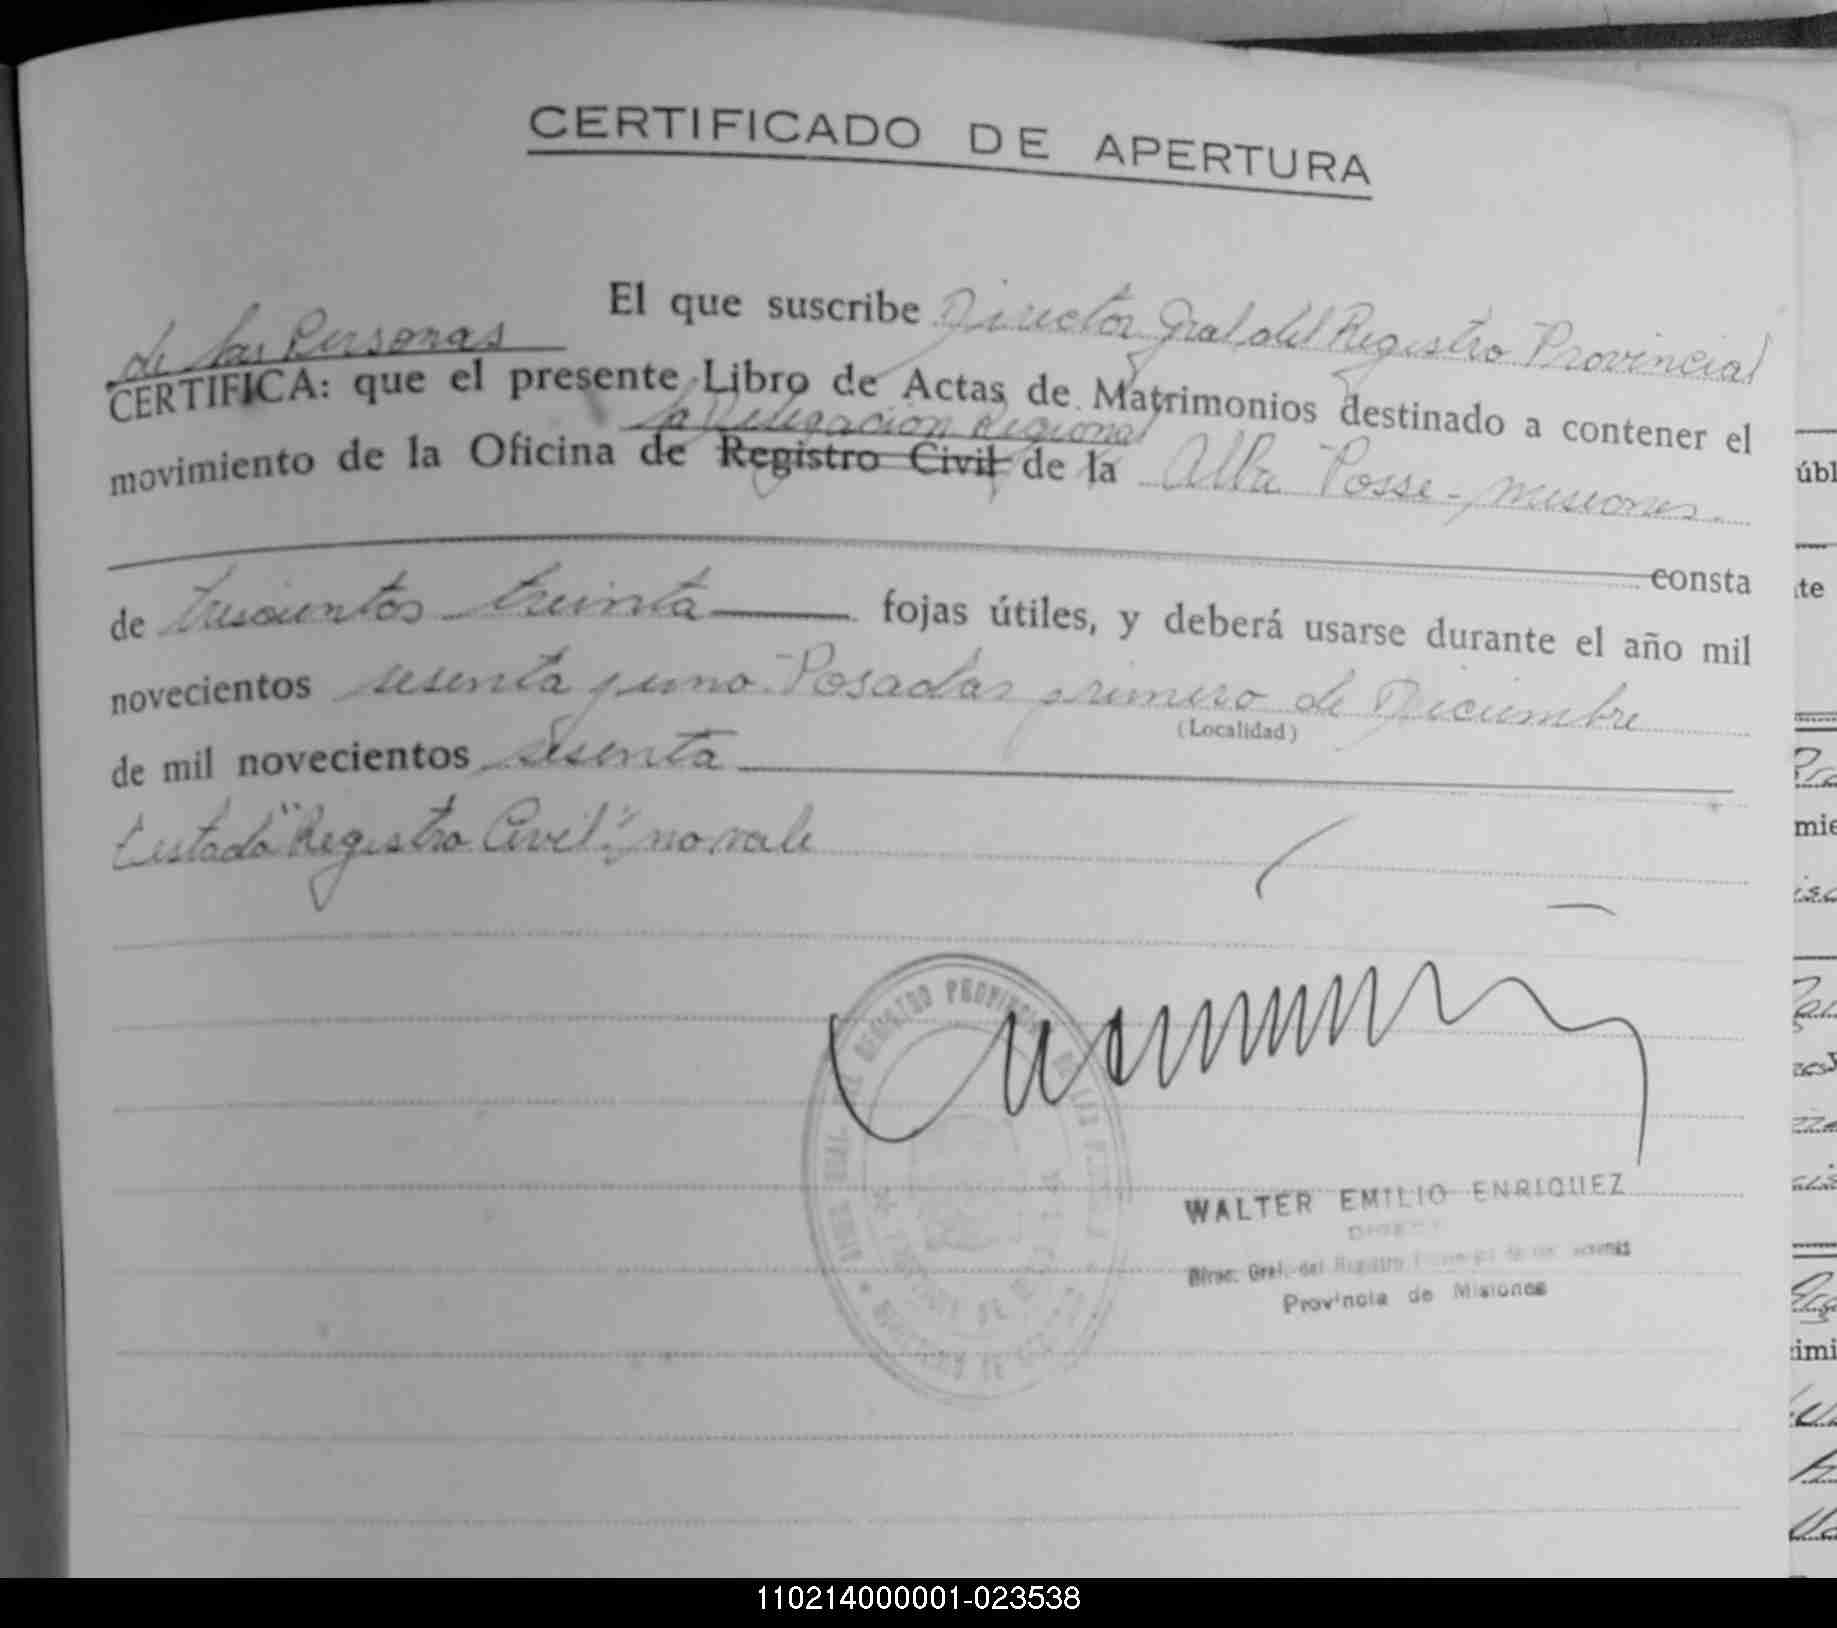 CERTIFICADO DE APERTURA
El que suscribe Director Gral del Registro Provincial
de las Personas
CERTIFICA: que el presente Libro de Actas de Matrimonios destinado a contener el
la Delegación Regional
movimiento de la Oficina de Registro Civil de la Alba Posse - Misiones.
consta
de trescientos treinta fojas útiles, y deberá usarse durante el año mil
novecientos sesenta y uno.- Posadas primero de Diciembre
(Localidad)
de mil novecientos sesenta
Testado "Registro Civil": no vale
REGISTRO PROVINCIAL DE LAS
WALTER EMILIO ENRIQUEZ
Direc. Gral. del Registro
Provincia de Misiones
110214000001-023538